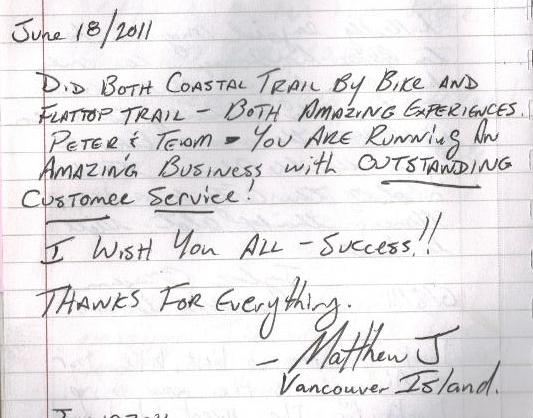 June 18/2011
Did Both Coastal Trail By Bike and
Flattop Trail - Both Amazing Experiences.
Peter & Team - You Are Running An
Amazing Business with OUTSTANDING
Customer Service!
I Wish You All - Success!!
Thanks For Everything.
- Matthew J
Vancouver Island.